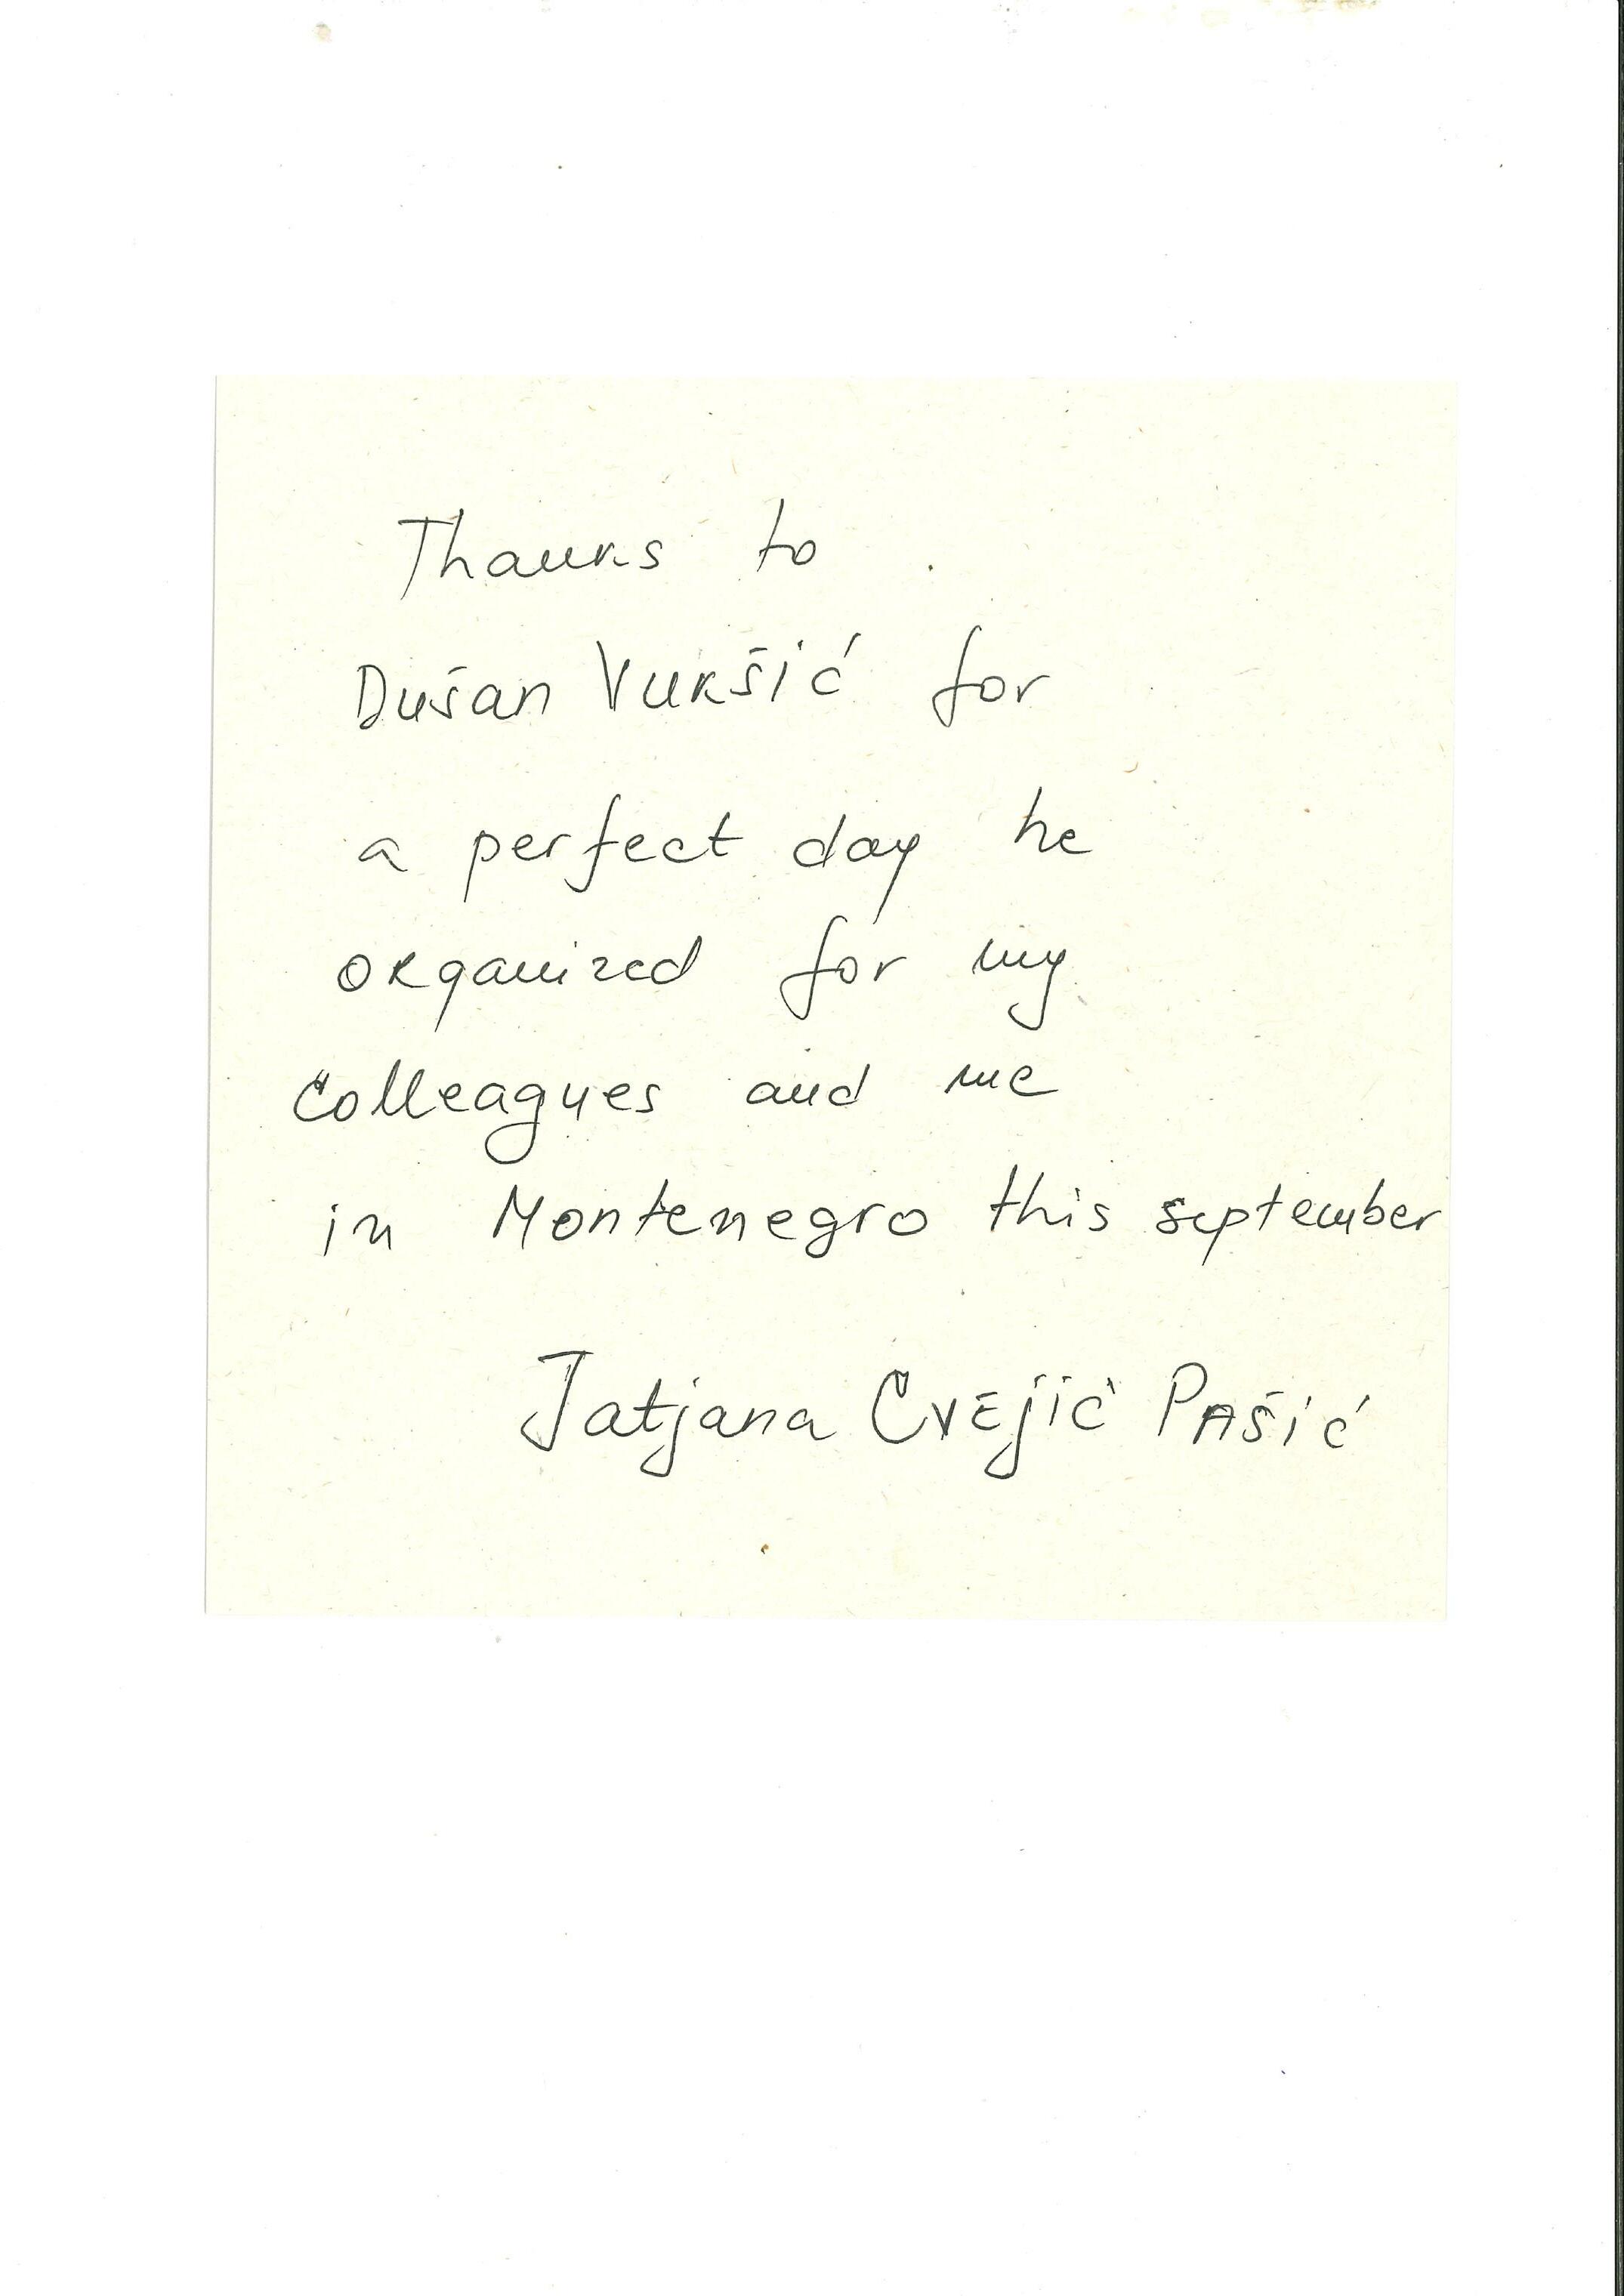 Thanks to
Dušan Vukšić for
a perfect day he
organized for my
colleagues and me
in Montenegro this september
Tatjana Cvejić Pašić